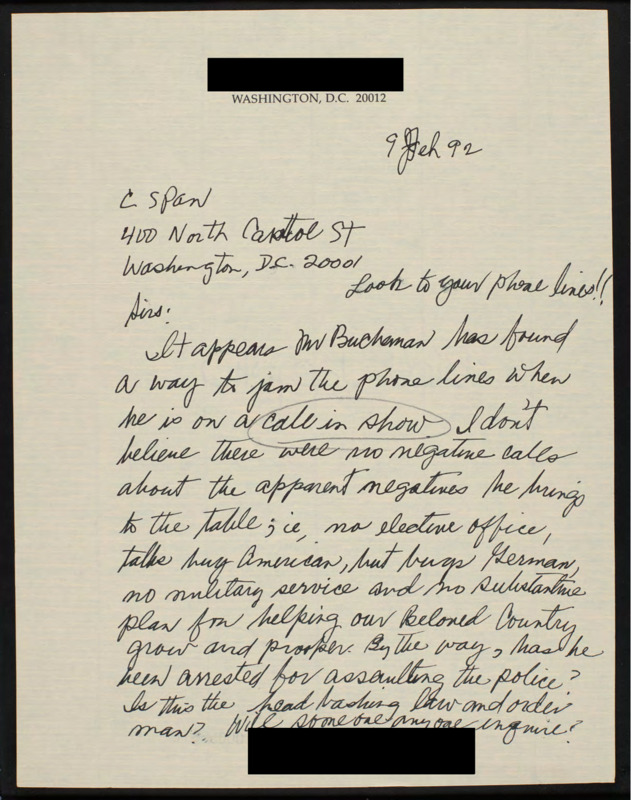 WASHINGTON, D.C. 20012
9 Feb 92
C SPAN
400 North Capitol St
Washington, D.C. 20001
Look to your phone lines!!
Sirs:
It appears Mr Buchanan has found
a way to jam the phone lines when
he is on a call in show. I don't
believe there were no negative calls
about the apparent negatives he brings
to the table; ie, no elective office,
talks buy American, but buys German,
no military service and no substantive
plan for helping our Beloved Country
grow and prosper. By the way, has he
been arrested for assaulting the police?
Is this the head bashing law and order
man? Will someone anyone inquire?